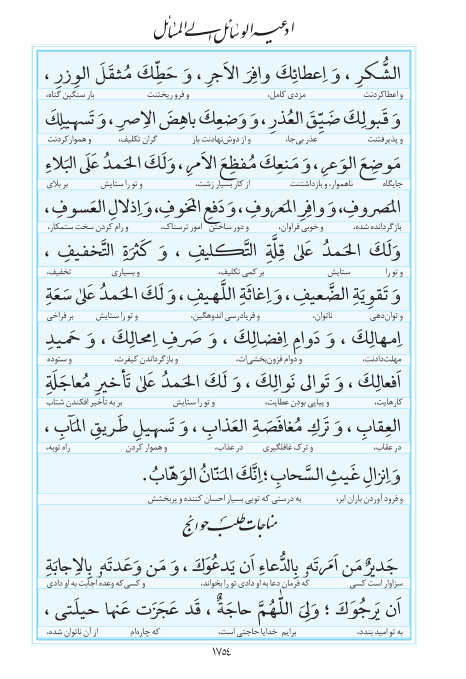 ادعیه الوسائل الی المسائل
الشُّكرِ ، وَ اِعطائِكَ وافِرَ الاَجرِ ، وَ حَطِّكَ مُثقَلَ الوِزرِ ،
و اعطا کردنت مزدی کامل، و فرو ریختنت بار سنگین گناه،
وَ قَبولِكَ ضَيِّقَ العُذرِ ، وَ وَضعِكَ باهِضَ الاِصرِ ، وَ تَسهيلِكَ
و پذیرفتنت عذر بی‌جا، و از دوش نهادنت بار گران تکلیف، و هموار کردنت
مَوضِعَ الوَعرِ ، وَ مَنعِكَ مُفظِعَ الاَمرِ ، وَ لَكَ الحَمدُ عَلَى البَلاءِ
جایگاه ناهموار، و بازداشتنت از کار بسیار زشت، و تو را ستایش بر بلای
المَصروفِ، وَ وافِرِ المَعروفِ، وَ دَفعِ المَخوفِ، وَ اِذلالِ العَسوفِ ،
بازگردانده شده، و خوبی فراوان، و دور ساختن امور ترسناک، و رام کردن سخت ستمکار.
وَلَكَ الحَمدُ عَلىٰ قِلَّةِ التَّكليفِ ، وَ كَثرَةِ التَّخفيفِ ،
و تو را ستایش بر کمی تکلیف، و بسیاری تخفیف،
وَ تَقوِيَةِ الضَّعيفِ، وَ اِغاثَةِ اللَّهيفِ، وَ لَكَ الحَمدُ عَلىٰ سَعَةِ
و توان‌دهی ناتوان، و فریادرسی اندوهگین، و تو را ستایش بر فراخی
اِمهالِكَ ، وَ دَوامِ اِفضالِكَ ، وَ صَرفِ اِمحالِكَ ، وَ حَميدِ
مهلت‌دادنت، و دوام فزون‌بخشی‌ات، و بازگرداندن کیفرت، و ستوده
اَفعالِكَ ، وَ تَوالی نَوالِكَ ، وَ لَكَ الحَمدُ عَلىٰ تَأخيرِ مُعاجَلَةِ
کارهایت، و پیاپی بودن عطایت، و تو را ستایش بر به تأخیر افکندن شتاب
العِقابِ ، وَ تَركِ مُغافَصَةِ العَذابِ ، وَ تَسهيلِ طَريقِ المَآبِ ،
در عقاب، و ترک غافلگیری در عذاب، و هموار کردن راه توبه،
وَ اِنزالِ غَيثِ السَّحابِ ؛ اِنَّكَ المَنّانُ الوَهّابُ.
و فرود آوردن باران ابر، به درستی که تویی بسیار احسان کننده و پربخشش
مناجات طلب حوائج
جَديرٌ مَن اَمَرتَهُ بِالدُّعاءِ اَن يَدعُوَكَ ، وَ مَن وَعَدتَهُ بِالاِجابَةِ
سزاوار است کسی که فرمان دعا به او دادی تو را بخواند، و کسی که وعده اجابت به او دادی
اَن يَرجُوَكَ ؛ وَلِیَ اللّٰهُمَّ حاجَةٌ ، قَد عَجَزَت عَنها حيلَتی ،
به تو امید بندد، برایم خدایا حاجتی است، که چاره‌ام از آن ناتوان شده،
١٧٥٤